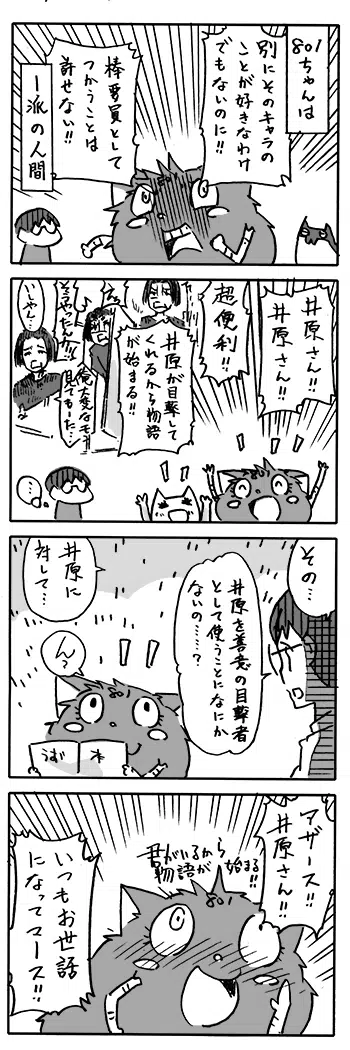 801ちゃんは
別にそのキャラの
ことが好きなわけ
でもないのに!!
棒要員として
つかうことは
許せない!!
一派の人間
井原さん!!
井原さん!!
超便利!!
井原が目撃して
くれるから物語
が始まる!!
俺大変なモノ
見てもた…
そうやったんか!!
いしやん…
…。
その…
井原を善意の目撃者
として使うことになにか
ないの……?
井原に
対して…
ん?
801
うず 本
アザース!!
井原さん!!
君がいるから
物語が
始まる!!
801
いつもお世話
になってマース!!